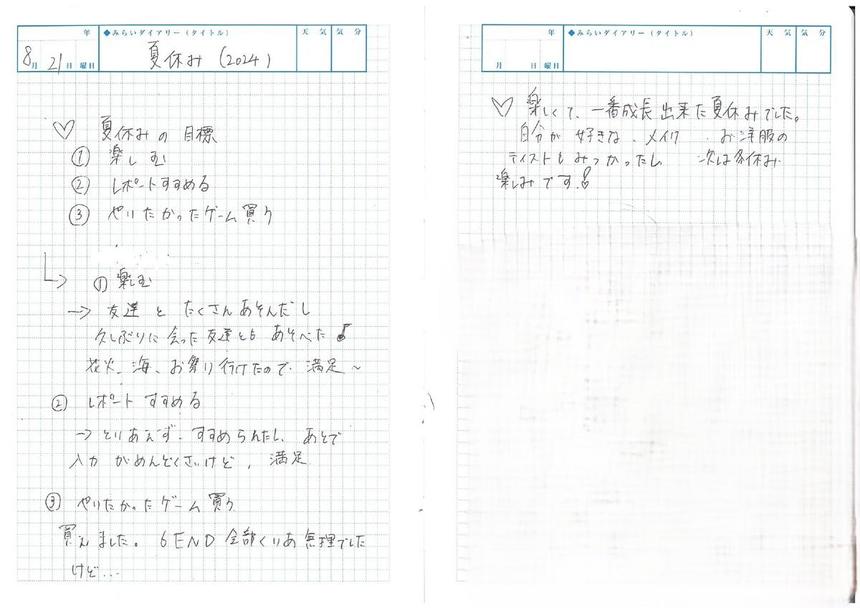 年 ◆みらいダイアリー(タイトル) 天気 気分
8月21日 曜日 夏休み(2024)
♡ 夏休みの目標
① 楽しむ
② レポートすすめる
③ やりたかったゲーム買う
↳ ① 楽しむ
→ 友達とたくさんあそんだし
久しぶりに会った友達ともあそべた♪
花火、海、お祭り行けたので満足~
② レポートすすめる
→とりあえず、すすめられたし、あとで
入力がめんどくさいけど、満足
③ やりたかったゲーム買う
買えました。6END全部くりあ無理でした
けど...
年 ◆みらいダイアリー(タイトル) 天気 気分
月 日 曜日
♡ 楽しくて、一番成長出来た夏休みでした。
自分が好きな、メイク、お洋服の
テイストもみつかったし 次は冬休み
楽しみです!